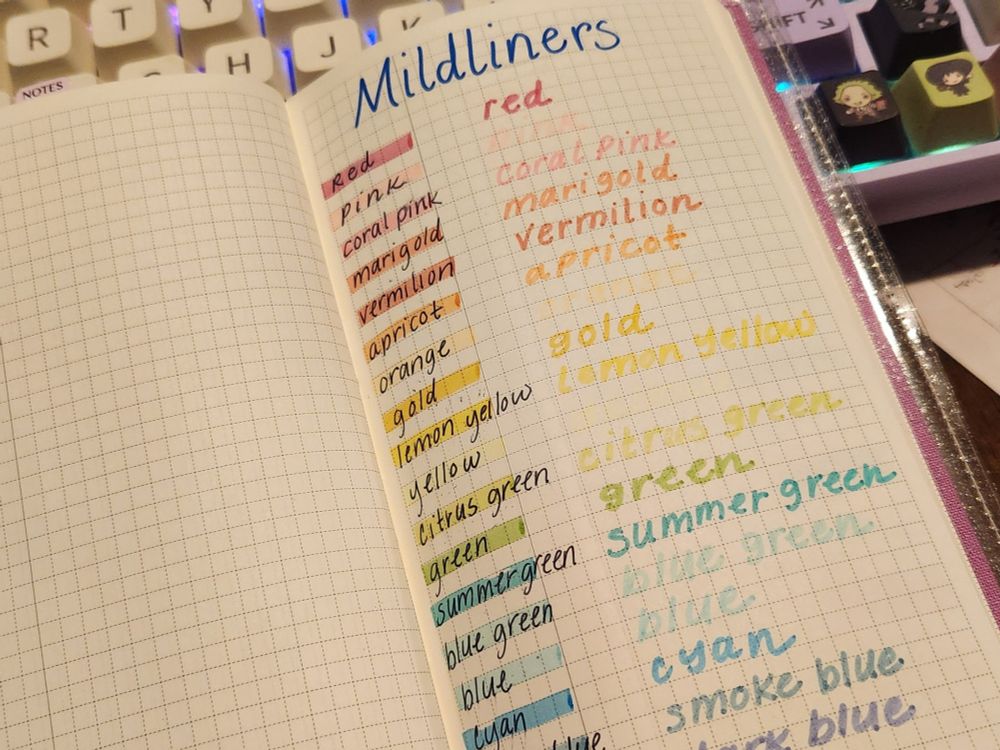 R T Y
H J K
SHIFT
NOTES
Mildliners
red red
pink pink
coral pink coral pink
marigold marigold
vermilion vermilion
apricot apricot
orange orange
gold gold
lemon yellow lemon yellow
yellow
citrus green citrus green
green green
summer green summer green
blue green blue green
blue blue
cyan cyan
blue smoke blue
dark blue